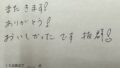 またきます!
ありがとう!
おいしかったです 抜群!